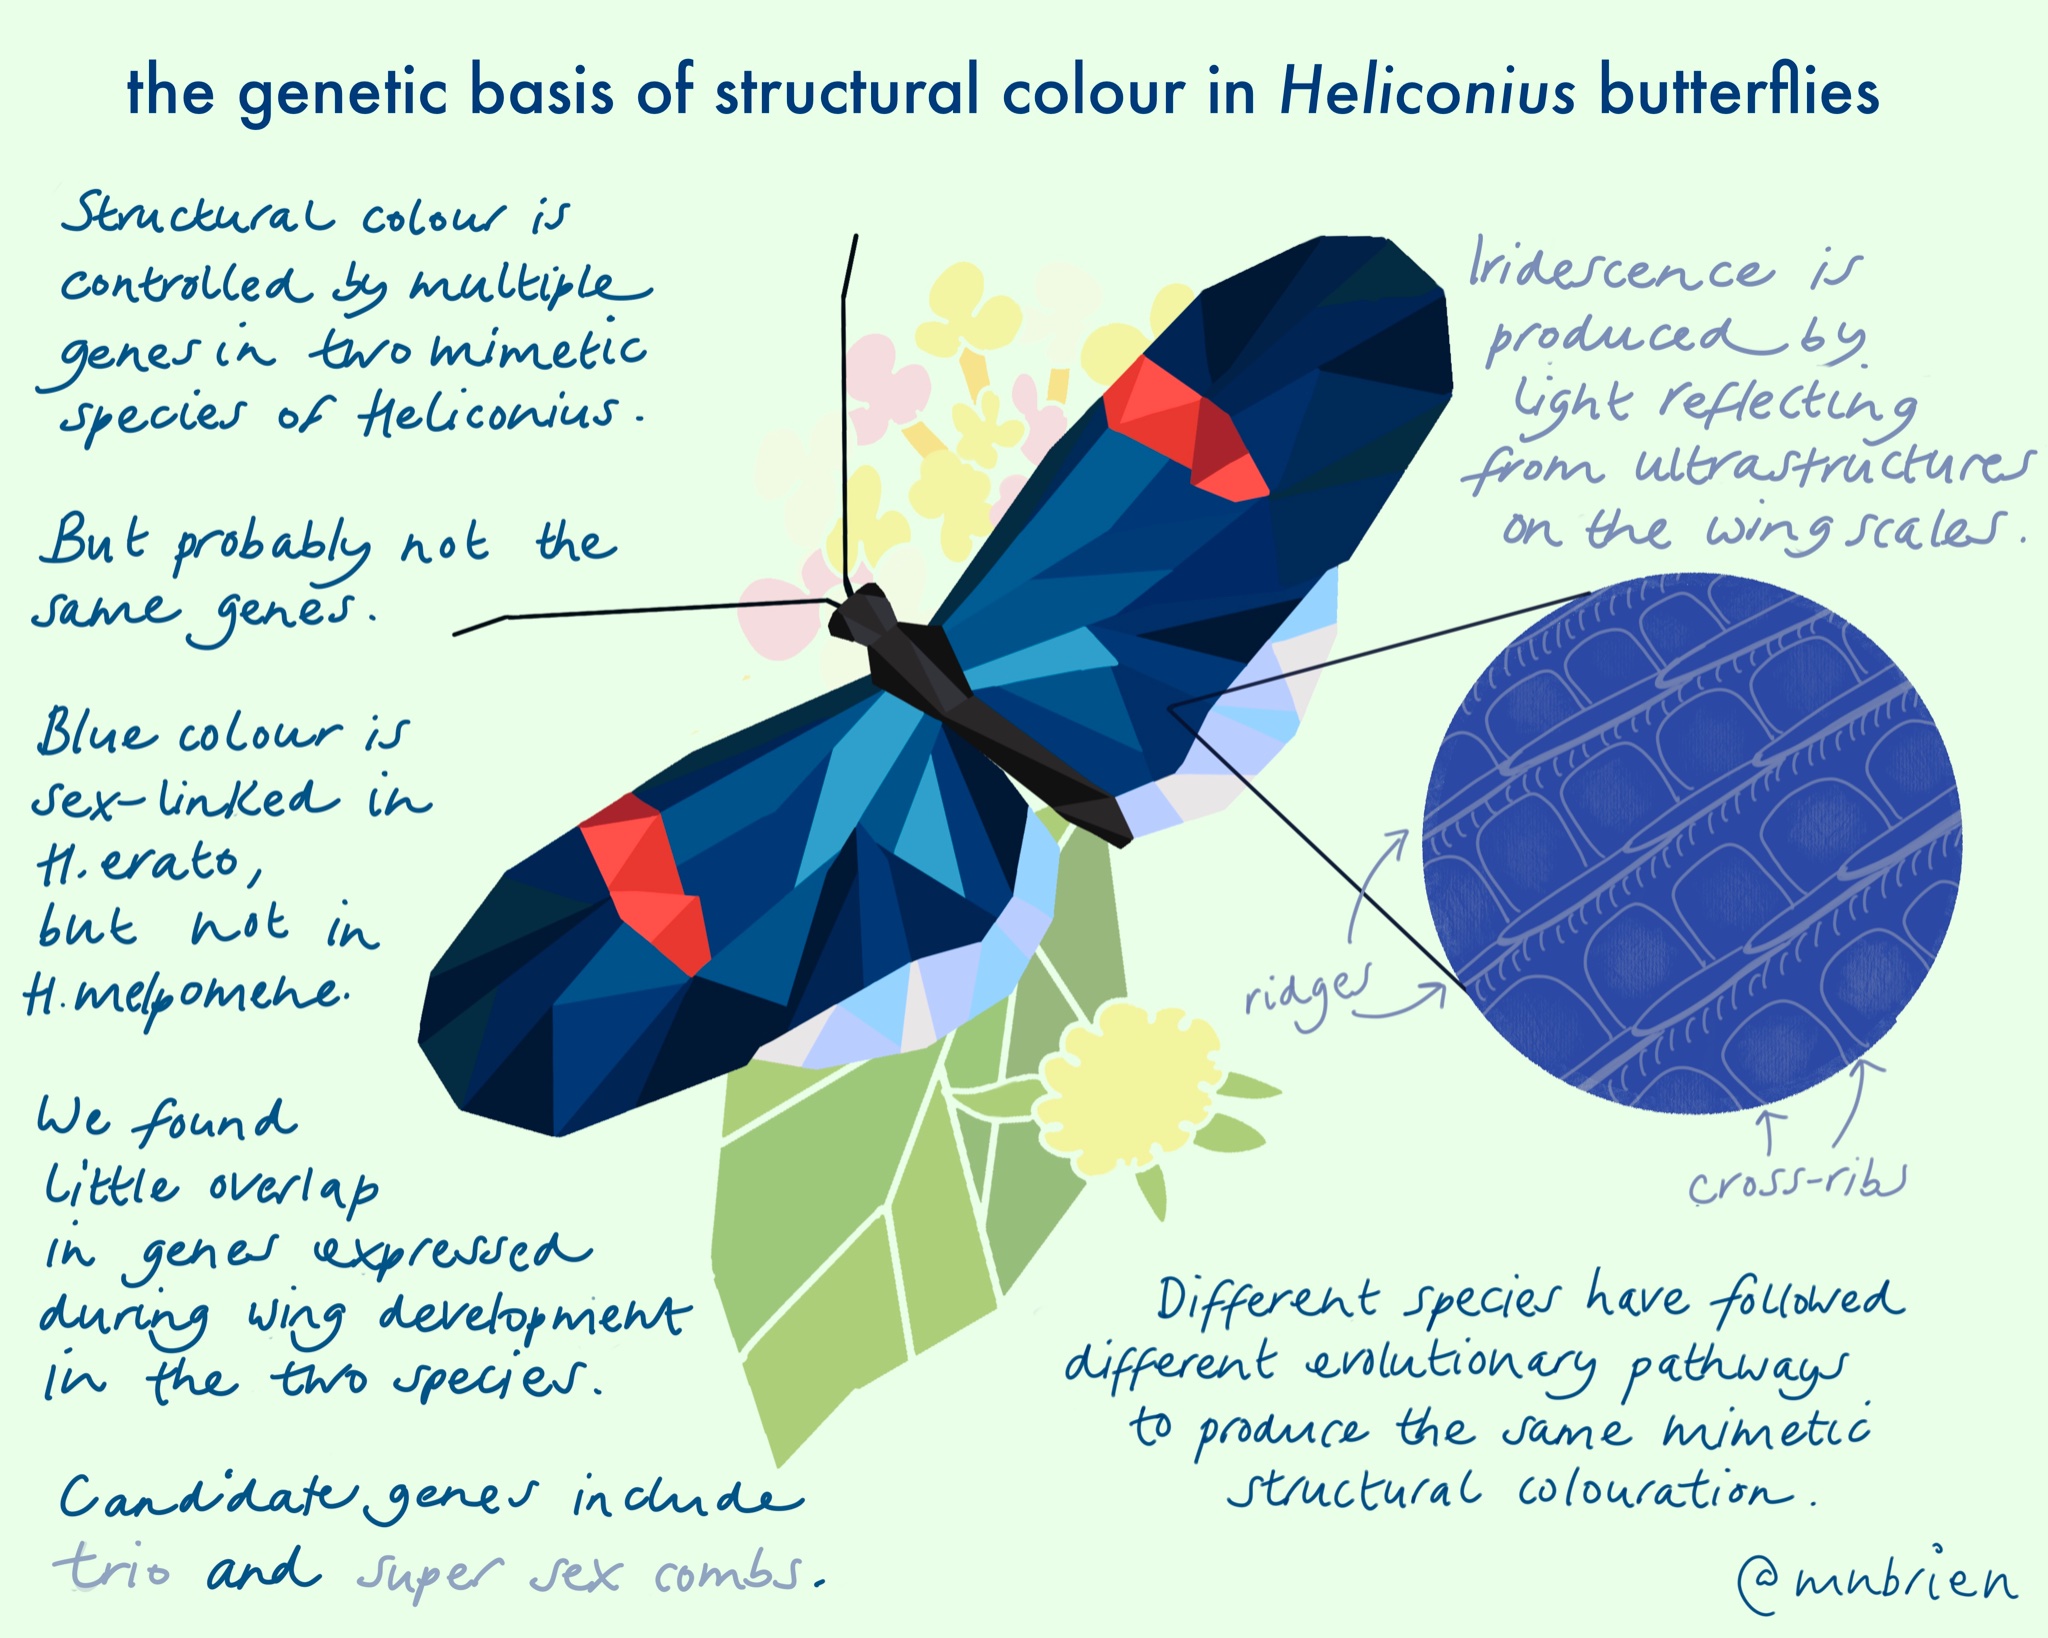 the genetic basis of structural colour in Heliconius butterflies
Structural colour is
controlled by multiple
genes in two mimetic
species of Heliconius.
But probably not the
same genes.
Blue colour is
sex-linked in
H. erato,
but not in
H. melpomene.
We found
little overlap
in genes expressed
during wing development
in the two species.
Candidate genes include
trio and super sex combs.
Iridescence is
produced by
light reflecting
from ultrastructures
on the wing scales.
ridges
cross-ribs
Different species have followed
different evolutionary pathways
to produce the same mimetic
structural colouration.
@mnbrien